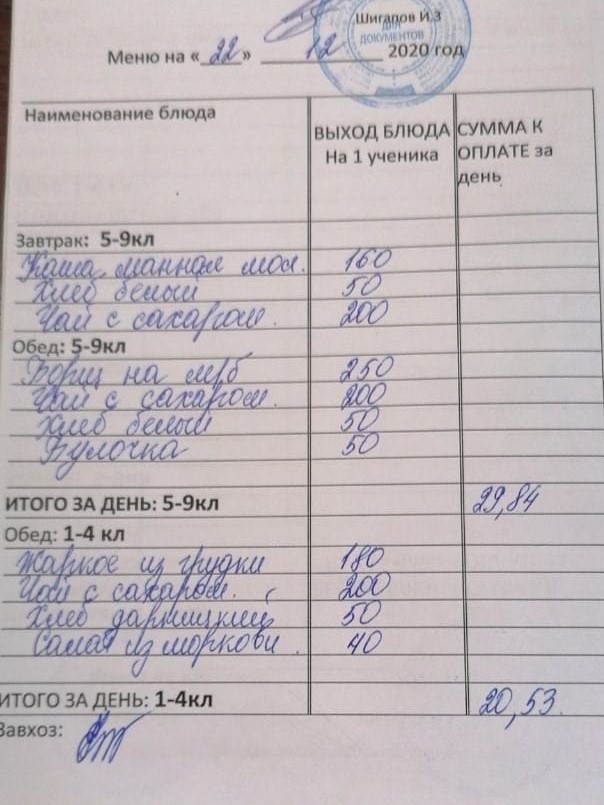 Шигапов И.З
ДЛЯ
ДОКУМЕНТОВ
Меню на «22» 12 2020 год
Наименование блюда
ВЫХОД БЛЮДА На 1 ученика
СУММА К ОПЛАТЕ за день
Завтрак: 5-9кл
Каша манная мол. 160
Хлеб белый 50
Чай с сахаром. 200
Обед: 5-9кл
Борщ на м/б 250
Чай с сахаром. 200
Хлеб белый 50
Булочка 50
ИТОГО ЗА ДЕНЬ: 5-9кл 29,84
Обед: 1-4 кл
Жаркое из грудки 180
Чай с сахаром. 200
Хлеб дарницкий 50
Салат из моркови. 40
ИТОГО ЗА ДЕНЬ: 1-4кл 20,53.
Завхоз: